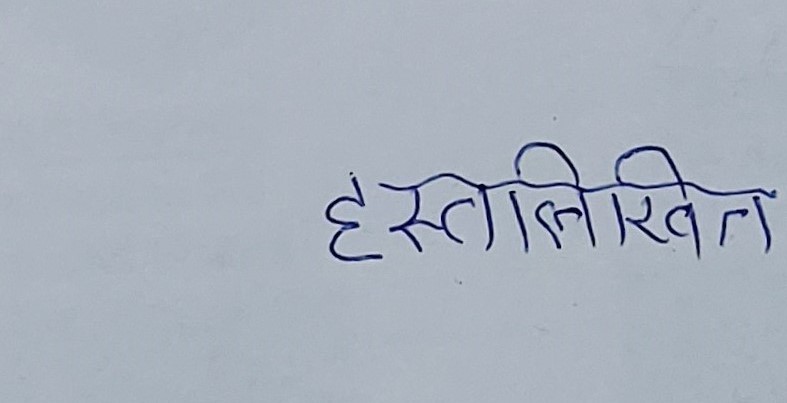 हस्तलिखित